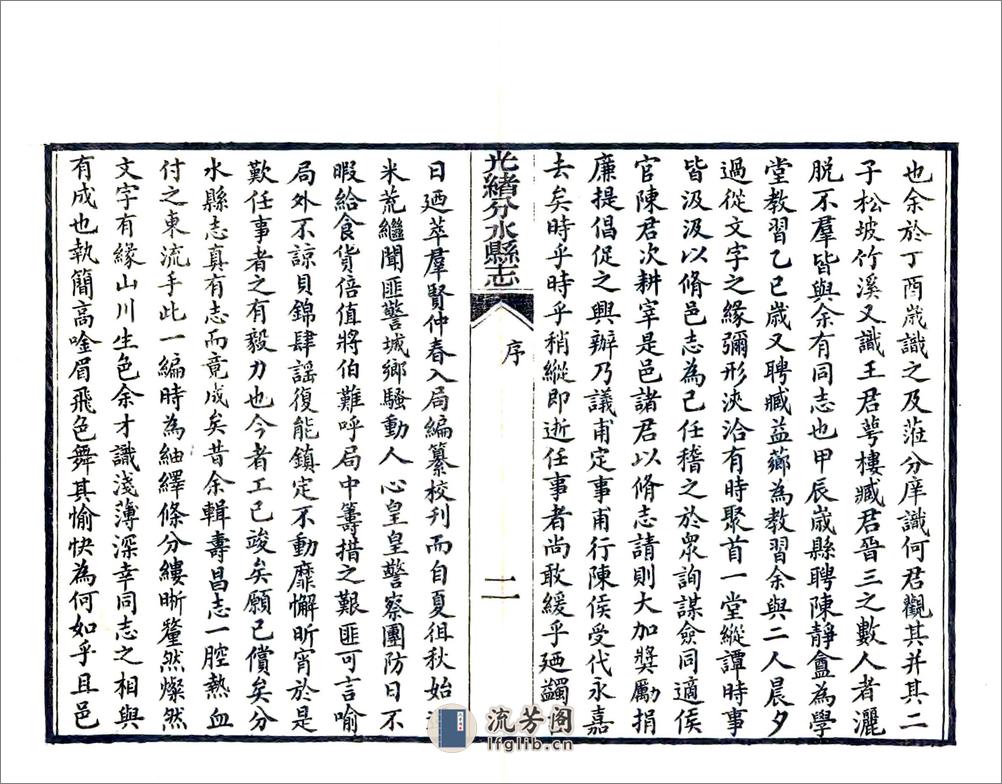 也余於丁酉歲識之及蒞分庠識何君觀其并其二
子松坡竹溪又識王君萼樓臧君晉三之數人者灑
脫不羣皆與余有同志也甲辰歲縣聘陳靜盦為學
堂教習乙巳歲又聘臧益薌為教習余與二人晨夕
過從文字之緣彌形浹洽有時聚首一堂縱譚時事
皆汲汲以脩邑志為己任稽之於眾詢謀僉同適侯
官陳君次耕宰是邑諸君以脩志請則大加獎勵捐
廉提倡促之興辦乃議甫定事甫行陳侯受代永嘉
去矣時乎時乎稍縱即逝任事者尚敢緩乎廼蠲
光緒分水縣志
序
二
日廼萃羣賢仲春入局編纂校刊而自夏徂秋始
米荒繼聞匪警城鄉騷動人心皇皇警察團防日不
暇給食貨倍值將伯難呼局中籌措之艱匪可言喻
局外不諒貝錦肆謠復能鎮定不動靡懈昕宵於是
歎任事者之有毅力也今者工已竣矣願已償矣分
水縣志真有志而竟成矣昔余輯壽昌志一腔熱血
付之東流手此一編時為紬繹條分縷晰釐然燦然
文字有緣山川生色余才識淺薄深幸同志之相與
有成也執簡高唫眉飛色舞其愉快為何如乎且邑
流芳阁
lfglib.cn